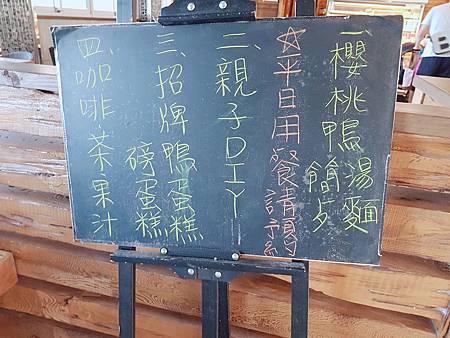 一、櫻桃鴨湯麵
簡歺
☆平日用餐請預訂
二、親子DIY
三、招牌鴨蛋糕
磅蛋糕
四、咖啡茶果汁